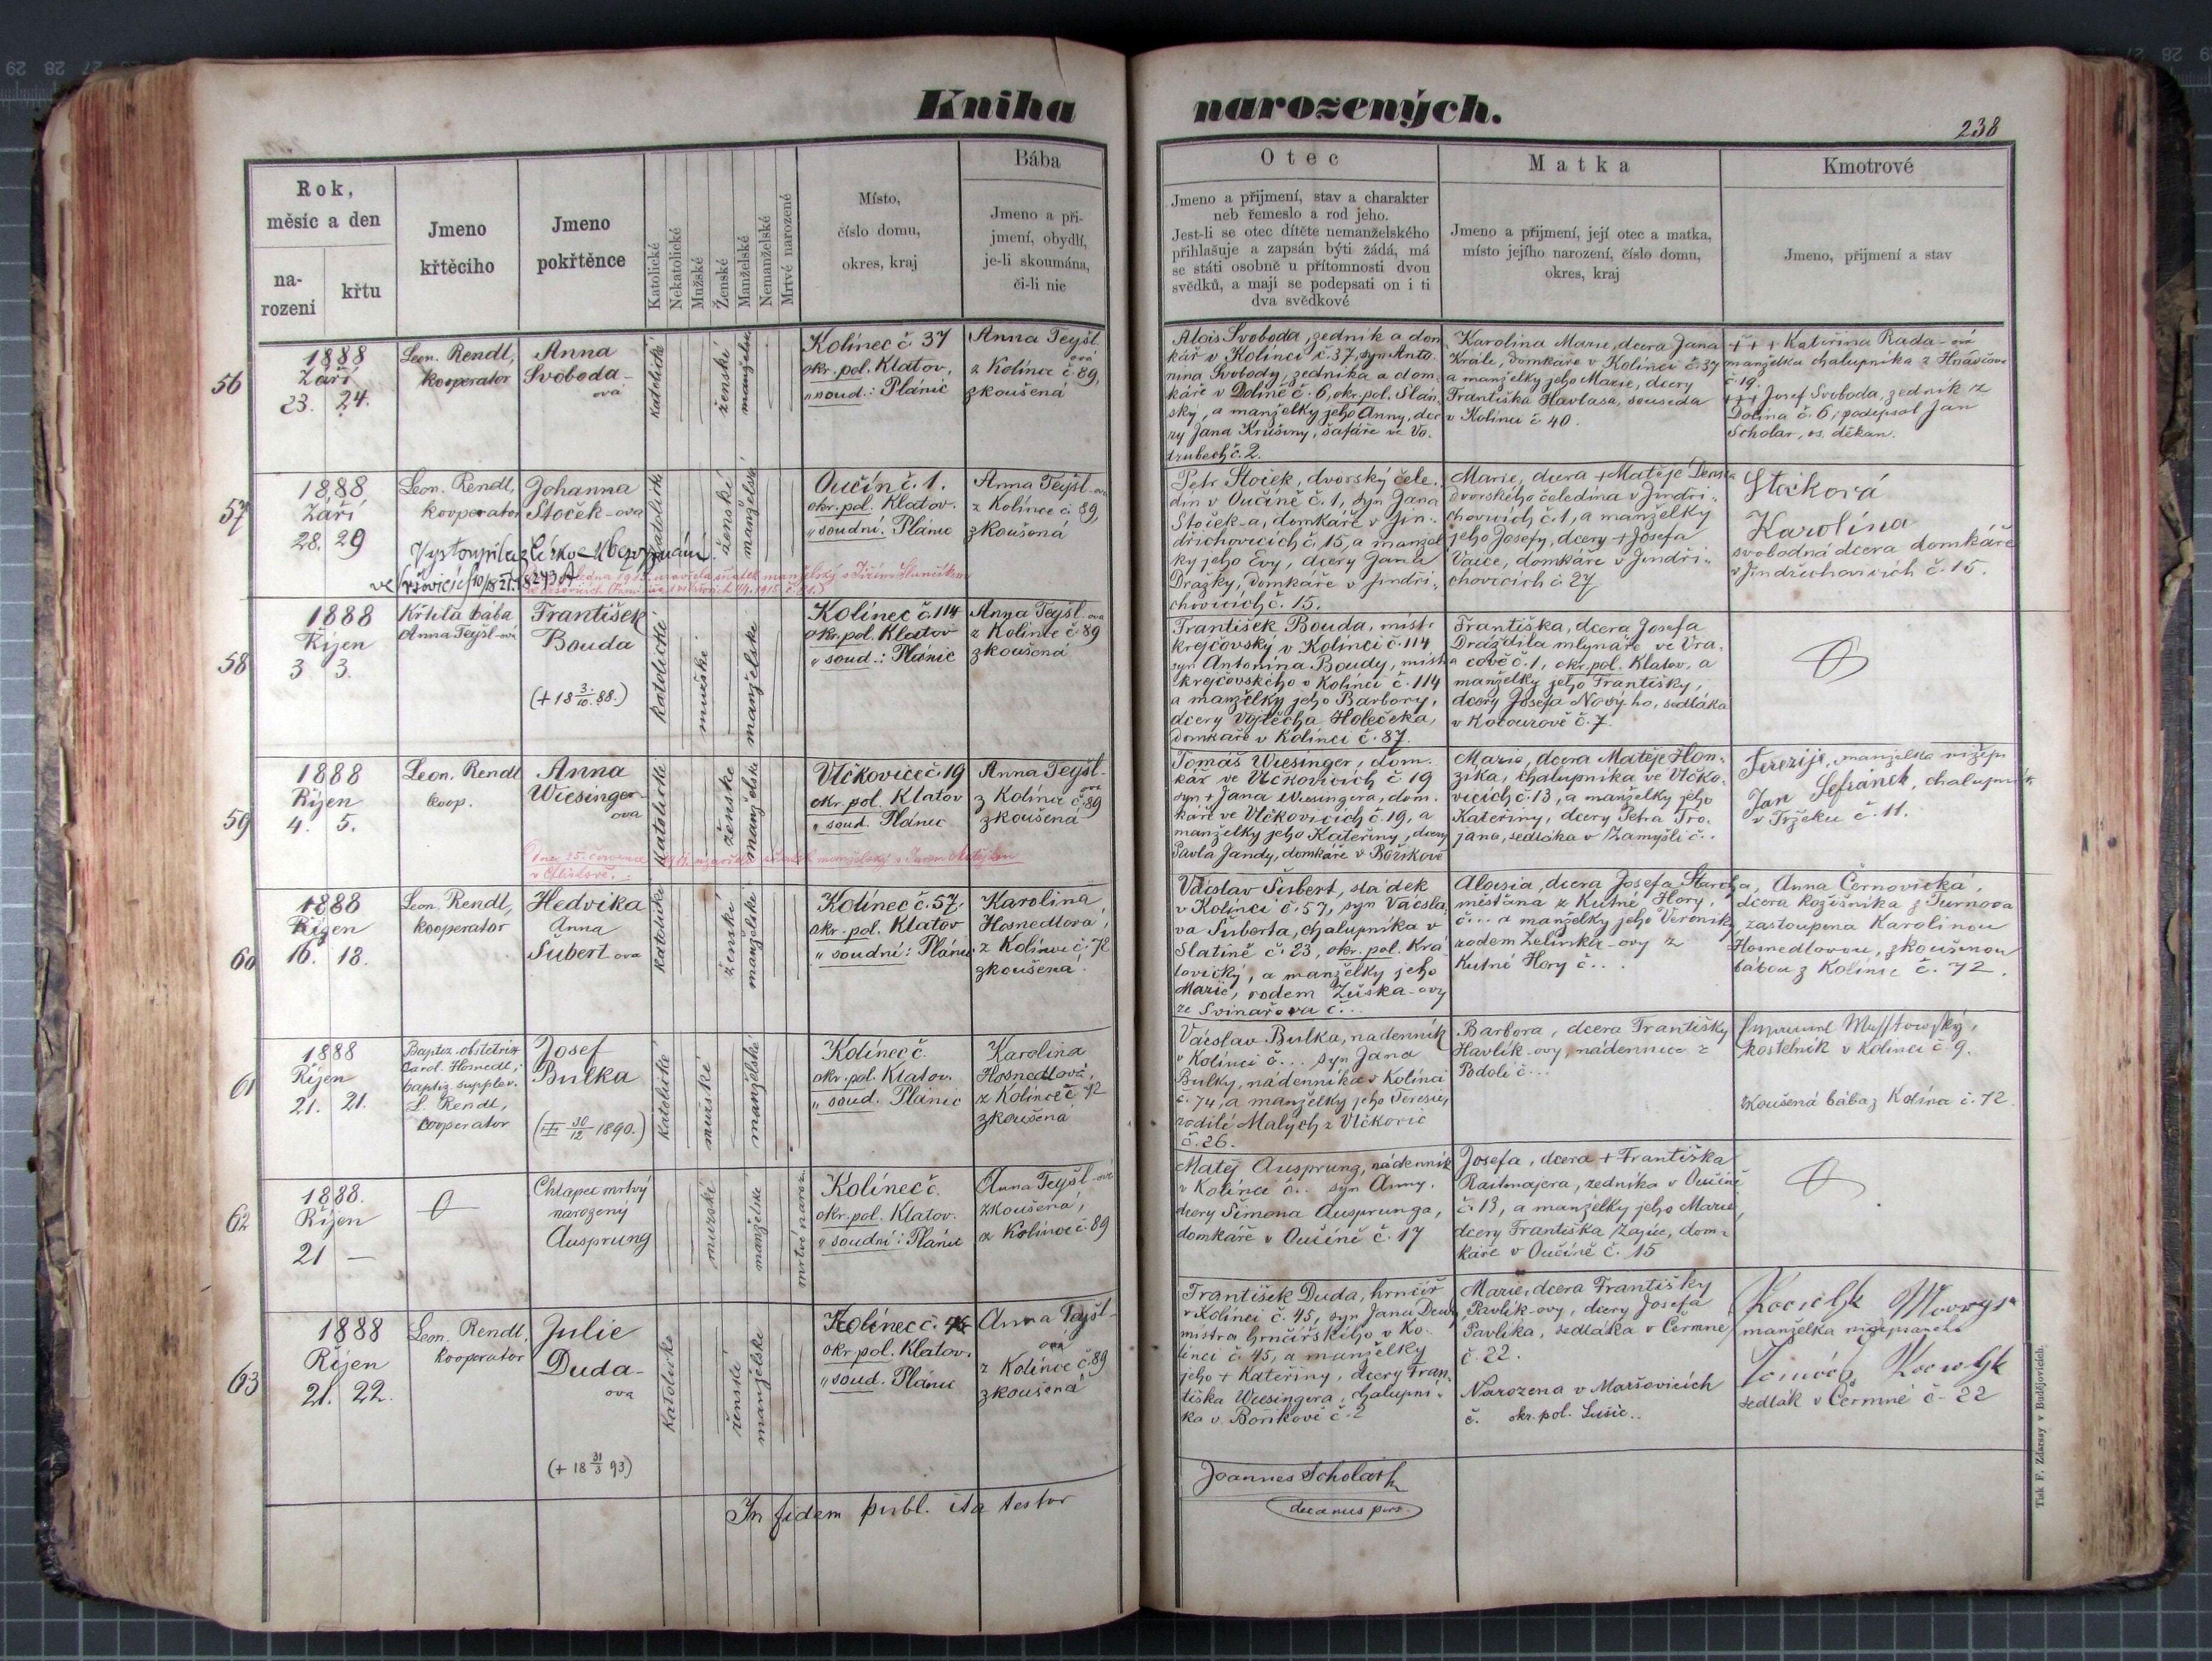 Kniha narozených.
238
Rok,
měsíc a den
na-
rození
křtu
Jmeno
křtěcího
Jmeno
pokřtěnce
Katolické
Nekatolické
Mužské
Ženské
Manželské
Nemanželské
Mrtvé narozené
Místo,
číslo domu,
okres, kraj
Bába
Jmeno a pří-
jmení, obydlí,
je-li skoumána,
či-li nic
Otec
Jmeno a přijmení, stav a charakter
neb řemeslo a rod jeho.
Jest-li se otec dítěte nemanželského
přihlašuje a zapsán býti žádá, má
se státi osobně u přítomnosti dvou
svědků, a mají se podepsati on i ti
dva svědkové
Matka
Jmeno a přijmení, její otec a matka,
místo jejího narození, číslo domu,
okres, kraj
Kmotrové
Jmeno, přijmení a stav
56
1888
Září
23. 24.
Leon. Rendl,
kooperator
Anna
Svoboda-
ová
katolické
ženské
manželské
Kolínec č 37
okr. pol. Klatov,
„ soud.: Plánic
Anna Teyśl-
ová
z Kolínce č. 89,
zkoušená
Alois Svoboda, zedník a dom
kář v Kolínci č. 37, syn Anto-
nína Svobody, zedníka a dom-
káře v Dolině č. 6, okr. pol. Slan-
ský, a manželky jeho Anny, dce
ry Jana Krušiny, šafáře ve Vo-
drubech č. 2.
Karolina Marie, dcera Jana
Krále, domkáře v Kolínci č. 37
a manželky jeho Marie, dcery
Františka Havlasa, souseda
v Kolínci č 40.
+++ Kateřina Rada-ová
manželka chalupníka z Hnačova
č. 19.
+++ Josef Svoboda, zedník z
Dolína č. 6; podepsal Jan
Scholar, os. děkan.
57
1888
Září
28. 29
Leon. Rendl,
kooperator
Johanna
Stoček-ova
Vystoupila z církve bez vyznání
katolické
ženské
manželské
Oučín č. 1.
okr. pol. Klatov.
„ soudní: Plánic
Anna Teyśl-ova
z Kolínce č. 89,
zkoušená
Petr Stoček, dvorský čele-
dín v Oučíně č. 1, syn Jana
Stoček-a, domkáře v Jin-
dřichovicích č. 15, a manžel
ky jeho Evy, dcery Jana
Drážky, domkáře v Jindři-
chovicích č. 15.
Marie, dcera + Matěje
dvorského čeledína v Jindři-
chovicích č. 1, a manželky
jeho Josefy, dcery + Josefa
Vaice, domkáře v Jindři-
chovicích č 27
Stočková
Karolína
svobodná dcera domkáře
v Jindřichovicích č. 15.
58
1888
Říjen
3 3.
Křtila bába
Anna Teyśl-ová
František
Bouda
(+ 18 3./10. 88.)
katolické
mužské
manželské
Kolínec č. 114
okr. pol. Klatov
„ soud.: Plánic
Anna Teyśl-ova
z Kolínce č. 89
zkoušená
František Bouda, mistr
krejčovský v Kolínci č. 114
syn Antonína Boudy, mistra
krejčovského v Kolínci č. 114
a manželky jeho Barbory,
dcery Vojtěcha Holečeka,
domkáře v Kolínci č. 87.
Františka, dcera Josefa
Dráždila mlynáře ve Vra-
cově č. 1, okr. pol. Klatov, a
manželky jeho Františky,
dcery Josefa Nový-ho, sedláka
v Kocourově č. 7.
59
1888
Říjen
4. 5.
Leon. Rendl
koop.
Anna
Wiesinger-
ova
katolické
ženské
manželské
Vlčkovice č. 19
okr. pol. Klatov
„ soud. Plánic
Anna Teyśl-
ova
z Kolínce č. 89
zkoušená
Tomáš Wiesinger, dom-
kář ve Vlčkovicích č 19
syn + Jana Wiesingera, dom-
káře ve Vlčkovicích č. 19, a
manželky jeho Kateřiny, dcery
Pavla Jandy, domkáře v Bořikově
Marie, dcera Matěje Hon-
zíka, chalupníka ve Vlčko-
vicích č. 13, a manželky jeho
Kateřiny, dcery Petra Tro-
jana, sedláka v Zamyšli č..
Terezije, manželka nížeps
Jan Šefránek, chalupník
v Tržeku č. 11.
60
1888
Říjen
16. 18.
Leon. Rendl,
kooperator
Hedvika
Anna
Šubert ova
katolické
ženské
manželské
Kolínec č. 57.
okr. pol. Klatov
„ soudní: Plánic
Karolina
Hosnedlová,
z Kolínce č. 72
zkoušená
Václav Šubert, sládek
v Kolínci č. 57, syn Vácsla-
va Šuberta, chalupníka v
Slatině č. 23, okr. pol. Krá
lovický, a manželky jeho
Marie, rodem Zuska-ovy
ze Svinařova č...
Aloisia, dcera Josefa Starcha,
měšťana z Kutné Hory,
č... a manželky jeho Veroniky
rodem Zelinka-ovy z
Kutné Hory č...
Anna Černovická,
dcera kožišníka z Turnova
zastoupena Karolinou
Hosnedlovou, zkoušenou
bábou z Kolince č. 72.
61
1888
Říjen
21. 21.
Baptiz. obstetrix
Carol. Hosnedl;
baptiz. supplev.
L. Rendl,
cooperator
Josef
Bulka
( 30/12 1890.)
katolické
mužské
manželské
Kolínec č.
okr. pol. Klatov.
„ soud. Plánic
Karolina
Hosnedlová,
z Kolínce č 72
zkoušená
Václav Bulka, nádenník
v Kolínci č... syn Jana
Bulky, nádenníka v Kolínci
č. 74, a manželky jeho Teresie,
rodilé Malých z Vlčkovic
č. 26.
Barbora, dcera Františky
Havlík-ovy, nádennice z
Podolí č...
kostelník v Kolínci č. 9.
zkoušená bába z Kolínce č. 72.
62
1888.
Říjen
21 —
Chlapec mrtvý
narozený
Ausprung
mužské
manželské
mrtvé naroz.
Kolínec č.
okr. pol. Klatov.
„ soudní: Plánic
Anna Teyśl-ová
zkoušená,
z Kolínce č. 89
Matěj Ausprung, nádenník
v Kolínci č.. syn Anny,
dcery Šimona Ausprunga,
domkáře v Oučíně č. 17
Josefa, dcera + Františka
Raitmajera, zedníka v Oučíně
č. 13, a manželky jeho Marie,
dcery Františka Zajíc, dom-
káře v Oučíně č. 15
63
1888
Říjen
21. 22.
Leon. Rendl,
kooperator
Julie
Duda-
ova
(+ 18 31/3 93)
katolické
ženské
manželské
Kolínec č. 45
okr. pol. Klatov.
„ soud. Plánic
Anna Teyśl-
ova
z Kolínce č. 89
zkoušená
František Duda, hrnčíř
v Kolínci č. 45, syn Jana Dudy
mistra hrnčířského v Ko-
línci č. 45, a manželky
jeho + Kateřiny, dcery Fran-
tiška Wiesingera, chalupní-
ka v Boříkově č. 2
Marie, dcera Františky
Pavlík-ovy, dcery Josefa
Pavlíka, sedláka v Čermné
č. 22.
Narozena v Maršovicích
č. okr. pol. Sušic..
manželka
sedlák v Čermné č. 22
In fidem publ. ita testor
Joannes Scholar
decanus pers.
Tisk F. Zdarssy v Budějovicích.